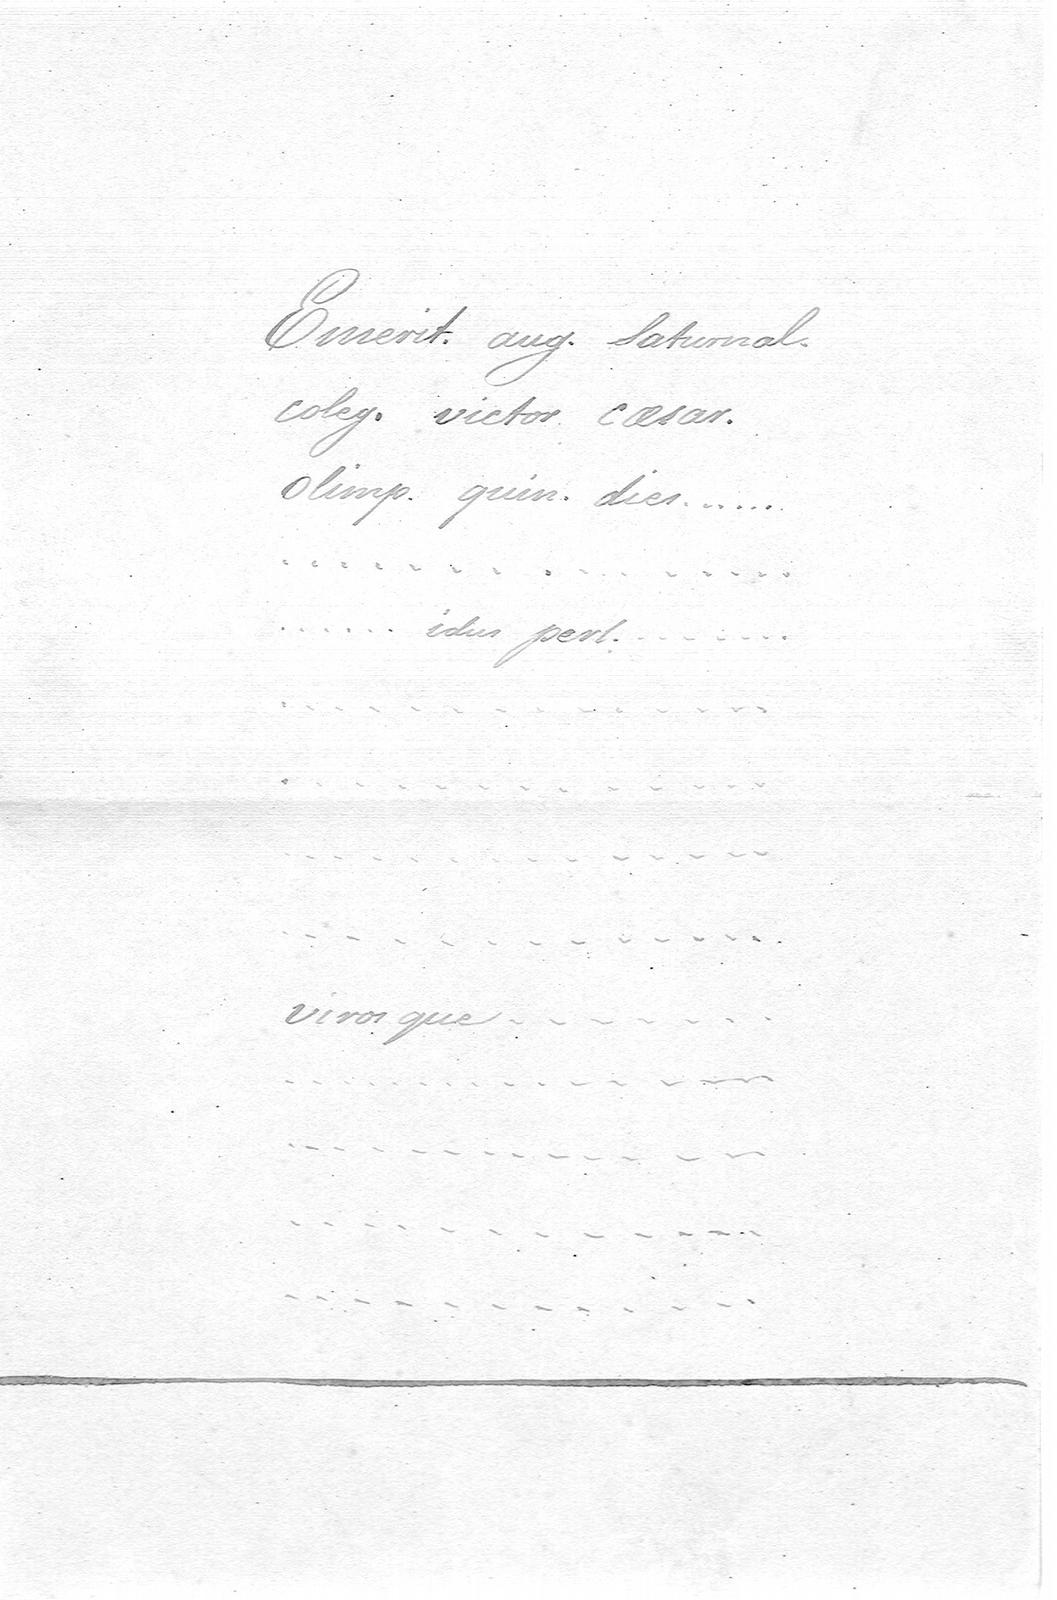 Emerit. aug. Saturnal.
coleg. victor cæsar.
olimp. quin. dies......
. . . . . . . . . . . . . . .
...... idus perl. . . . . . .
. . . . . . . . . . . . .
. . . . . . . . . . . . .
. . . . . . . . . . . . .
. . . . . . . . . . . . .
virosque . . . . . . . .
. . . . . . . . . . . . .
. . . . . . . . . . . . .
. . . . . . . . . . . . .
. . . . . . . . . . . . .